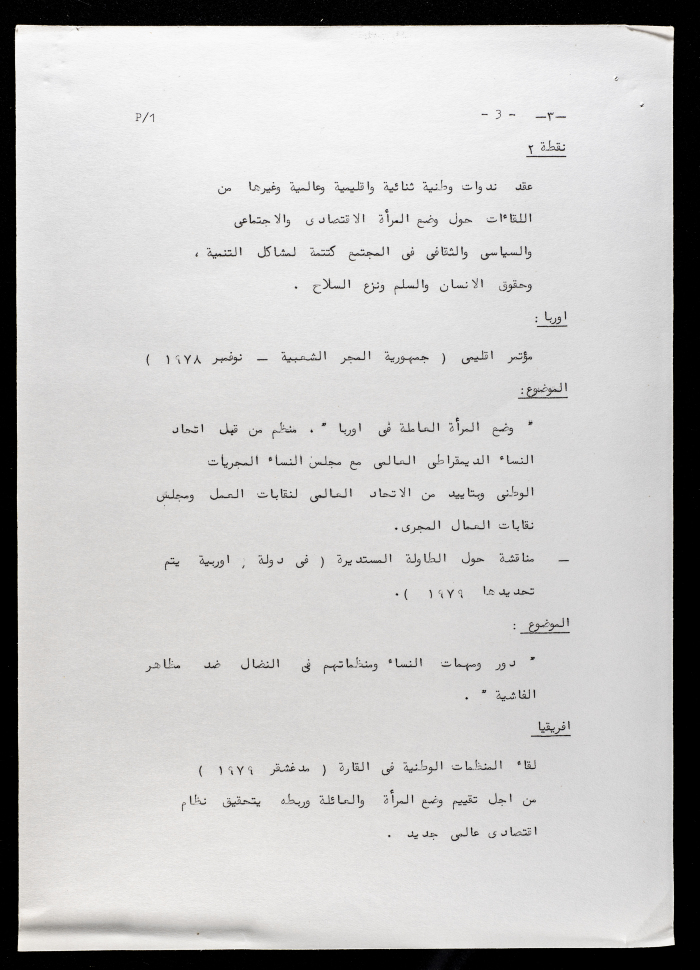 P/1 - 3 - —٣—
نقطة ٢
عقد ندوات وطنية ثنائية واقليمية وعالمية وغيرها من
اللقاءات حول وضع المرأة الاقتصادى والاجتماعى
والسياسى والثقافى فى المجتمع كتتمة لمشاكل التنمية ،
وحقوق الانسان والسلم ونزع السلاح .
اوربا :
مؤتمر اقليمى ( جمهورية المجر الشعبية — نوفمبر ١٩٧٨ )
الموضوع :
" وضع المرأة العاملة فى اوربا " . منظم من قبل اتحاد
النساء الديمقراطى العالمى مع مجلس النساء المجريات
الوطنى وبتاييد من الاتحاد العالمى لنقابات العمل ومجلس
نقابات العمال المجرى .
— مناقشة حول الطاولة المستديرة ( فى دولة , اوربية يتم
تحديدها ١٩٧٩ ) .
الموضوع :
" دور ومهمات النساء ومنظماتهم فى النضال ضد مظاهر
الفاشية " .
افريقيا
لقاء المنظمات الوطنية فى القارة ( مدغشقر ١٩٧٩ )
من اجل تقييم وضع المرأة والعائلة وربطه يتحقيق نظام
اقتصادى عالمى جديد .